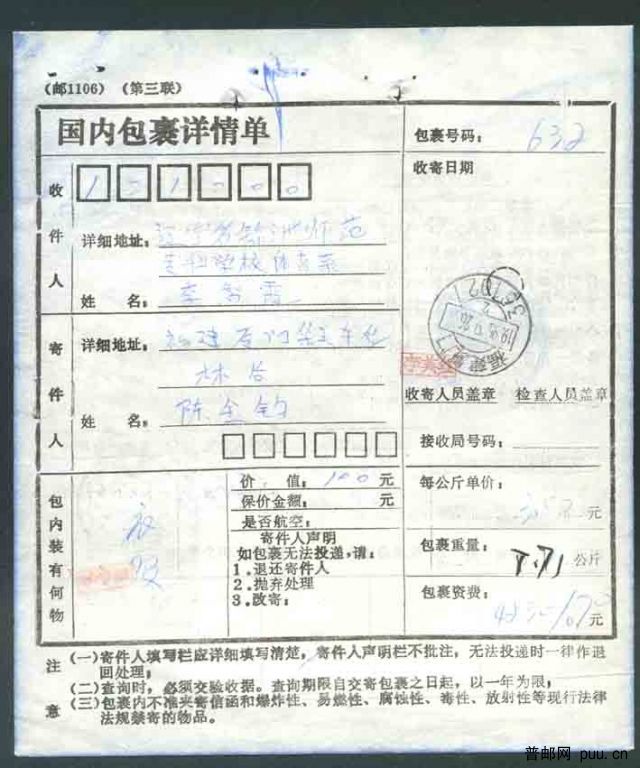 (邮1106) (第三联)
国内包裹详情单
包裹号码: 632
收件人
121000
收寄日期
详细地址: 辽宁省锦州师范
专科学校体育系
姓 名: 李
寄件人
详细地址: 福建厦门
姓 名: 陈金钧
361022
福建厦门
收寄人员盖章 检查人员盖章
接收局号码:
包内装有何物
衣服
价 值: 100 元
保价金额: 元
是否航空:
寄件人声明
如包裹无法投递,请:
1.退还寄件人
2.抛弃处理
3.改寄:
每公斤单价: 元
包裹重量: 公斤
包裹资费: 元
注意
(一)寄件人填写栏应详细填写清楚,寄件人声明栏不批注,无法投递时一律作退
回处理;
(二)查询时,必须交验收据。查询期限自交寄包裹之日起,以一年为限;
(三)包裹内不准夹寄信函和爆炸性、易燃性、腐蚀性、毒性、放射性等现行法律
法规禁寄的物品。
普邮网 puu.cn